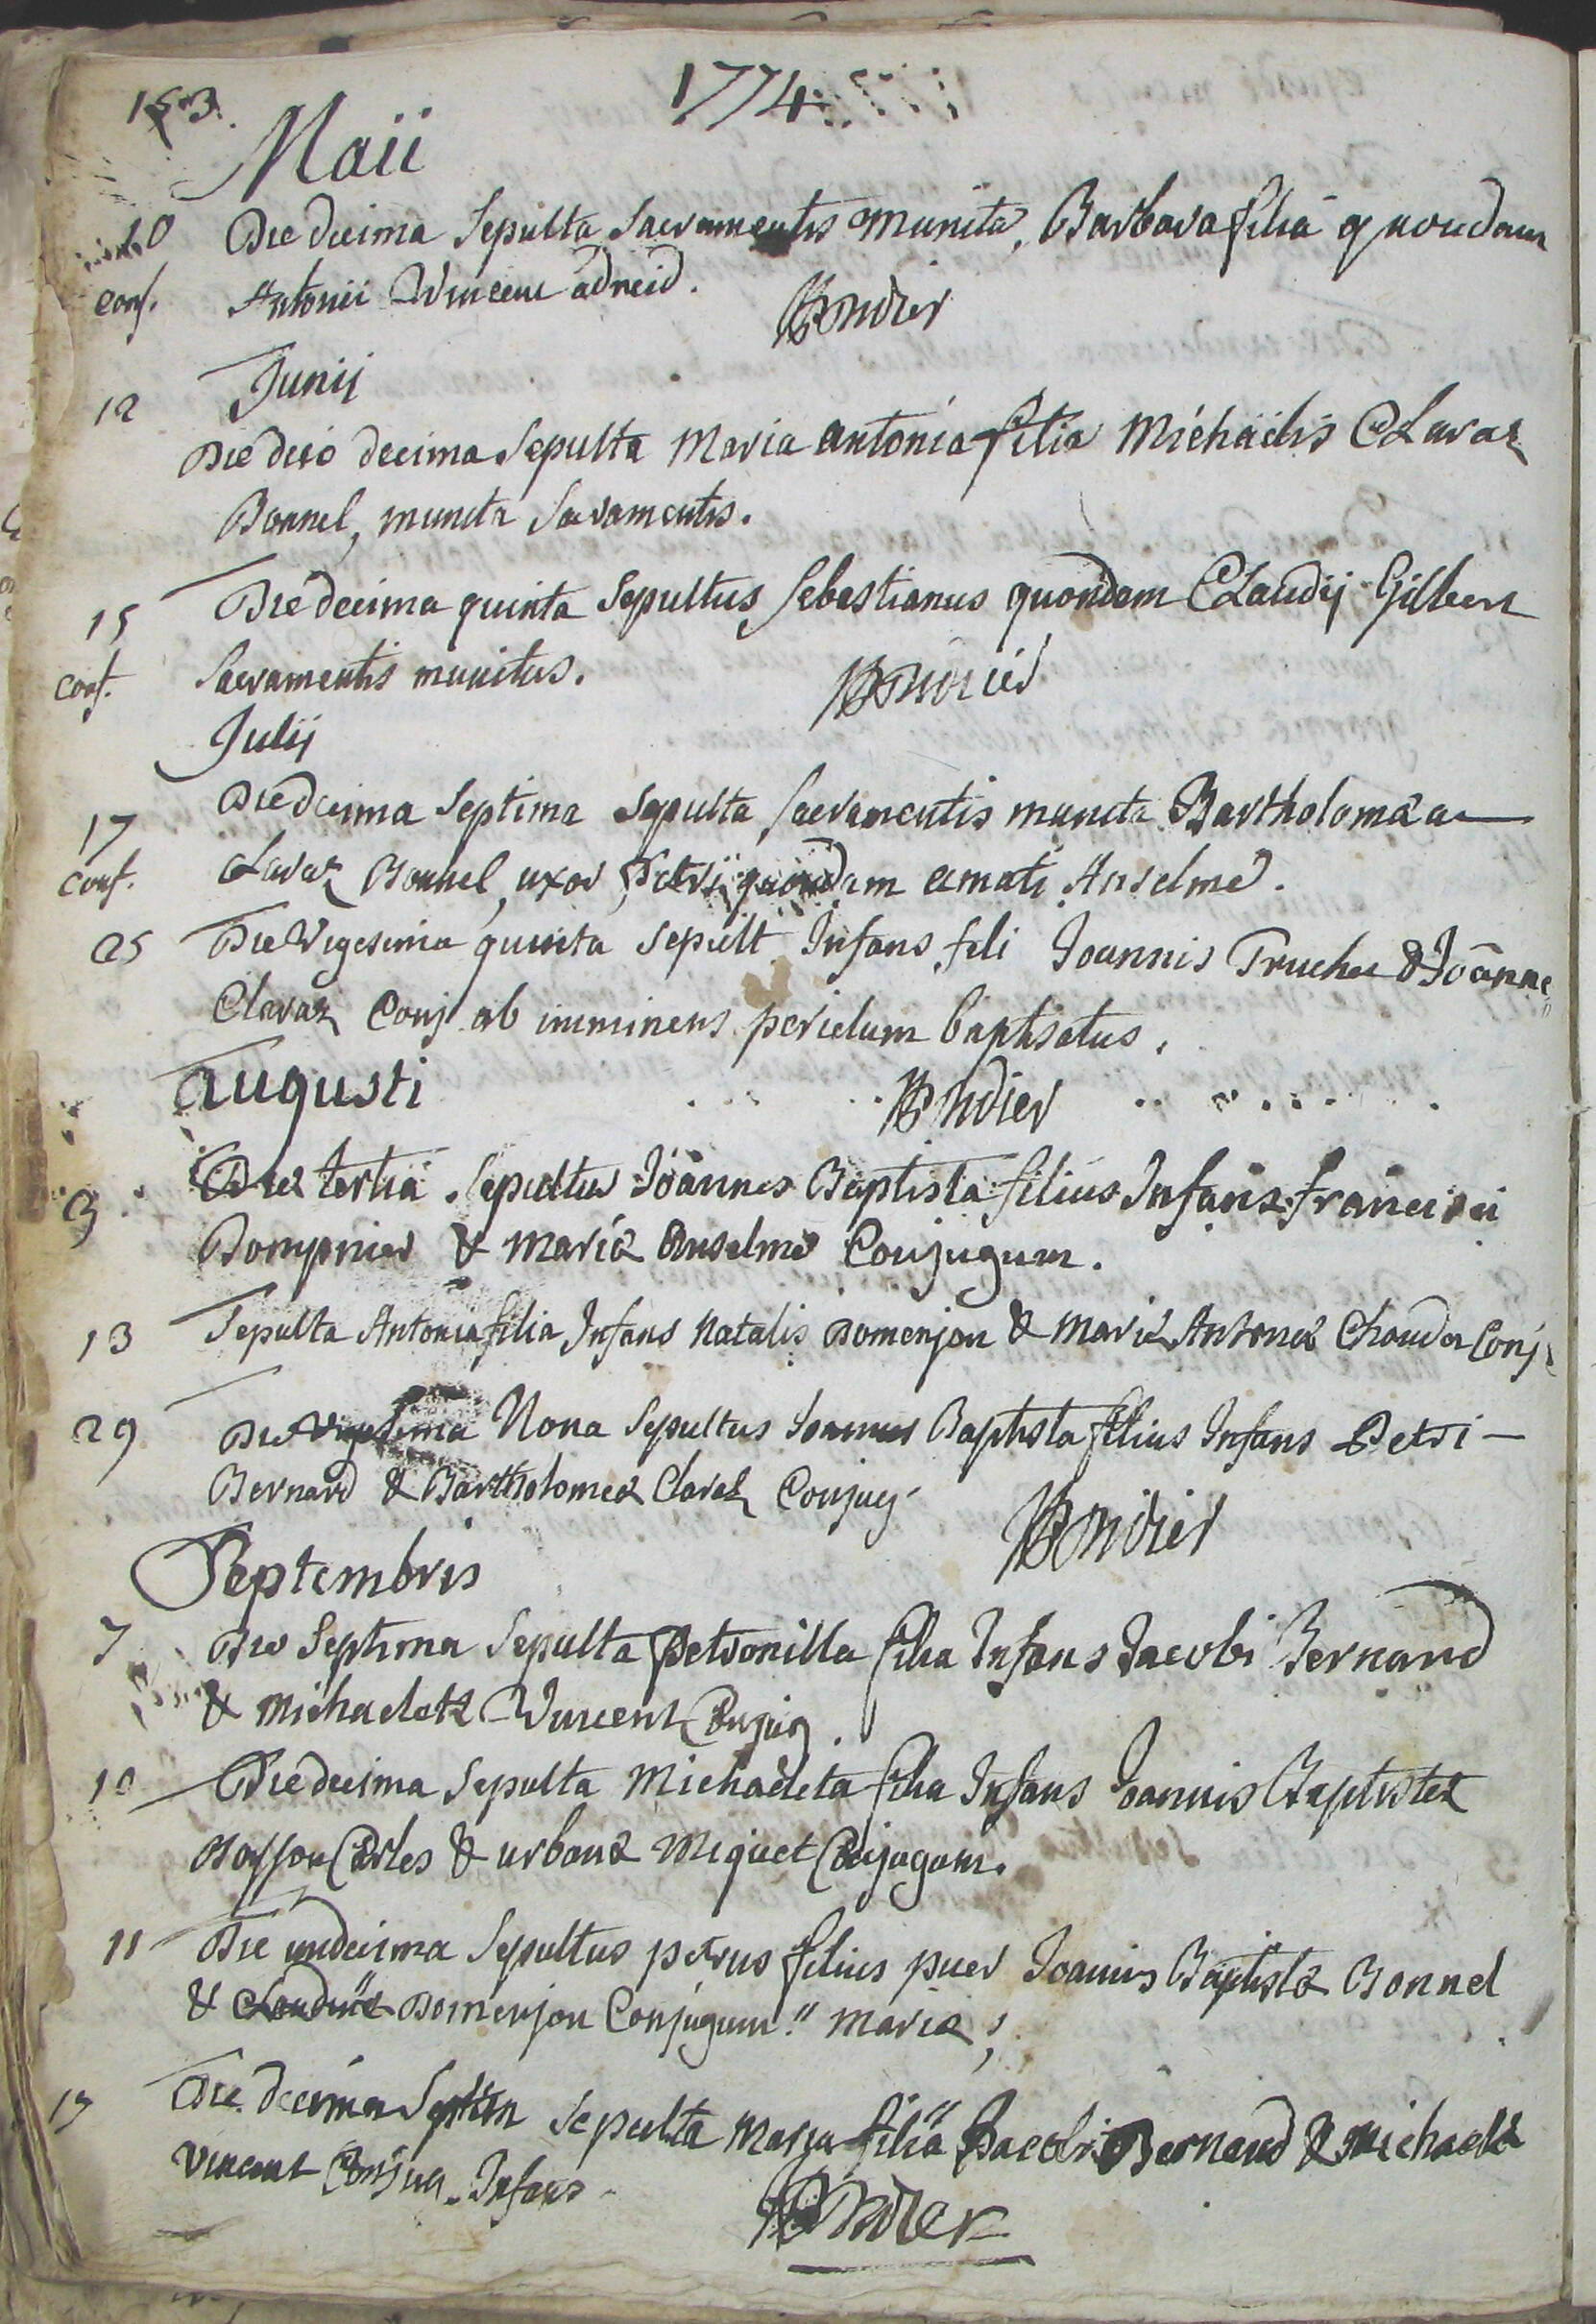 153.
1774
Maii
10 Die decima Sepulta Sacramentis munita, Barbara filia quondam
conf. Antonii Vincent
Junij
12 Die duo decima Sepulta Maria Antonia filia Michaëlis Claraz
Bonnel, munita Sacramentis.
15 Die decima quinta Sepultus Sebastianus quondam Claudij Gilbert
conf. Sacramentis munitus.
Julij
17 Die decima Septima Sepulta Sacramentis munita Bartholomæa
conf. Claraz Bonnel, uxor Petri quondam amati Anselme.
25 Die Vigesima quinta Sepult Infans fili Joannis Truchet & Joannæ
Claraz Conj ab imminens periclum baptisatus.
Augusti
3 Die tertia Sepultus Joannes Baptista filius Infans francisci
Dompnier & Mariæ Anselme Conjugum.
13 Sepulta Antonia filia Infans Natalis Domenjon & Mariæ Antoniæ Conj
29 Die Vigesima Nona Sepultus Joannes Baptista filius Infans Petri
Bernard & Bartholomeæ Claraz Conjug
Septembris
7 Die Septima Sepulta Petronilla filia Infans Jacobi Bernard
& Michaeletæ Vincent Conjug.
10 Die decima Sepulta Michaeleta filia Infans Joannis Baptistæ
Bosson & urbanæ Miquet Conjugum.
11 Die undecima Sepultus petrus filius puer Joannis Baptistæ Bonnel
& Claudiæ Domenjon Conjugum." Mariæ;
17 Die decima Septim Sepulta Maria filia Jacobi Bernard & Michaelæ
Vincent Conjug. Infans